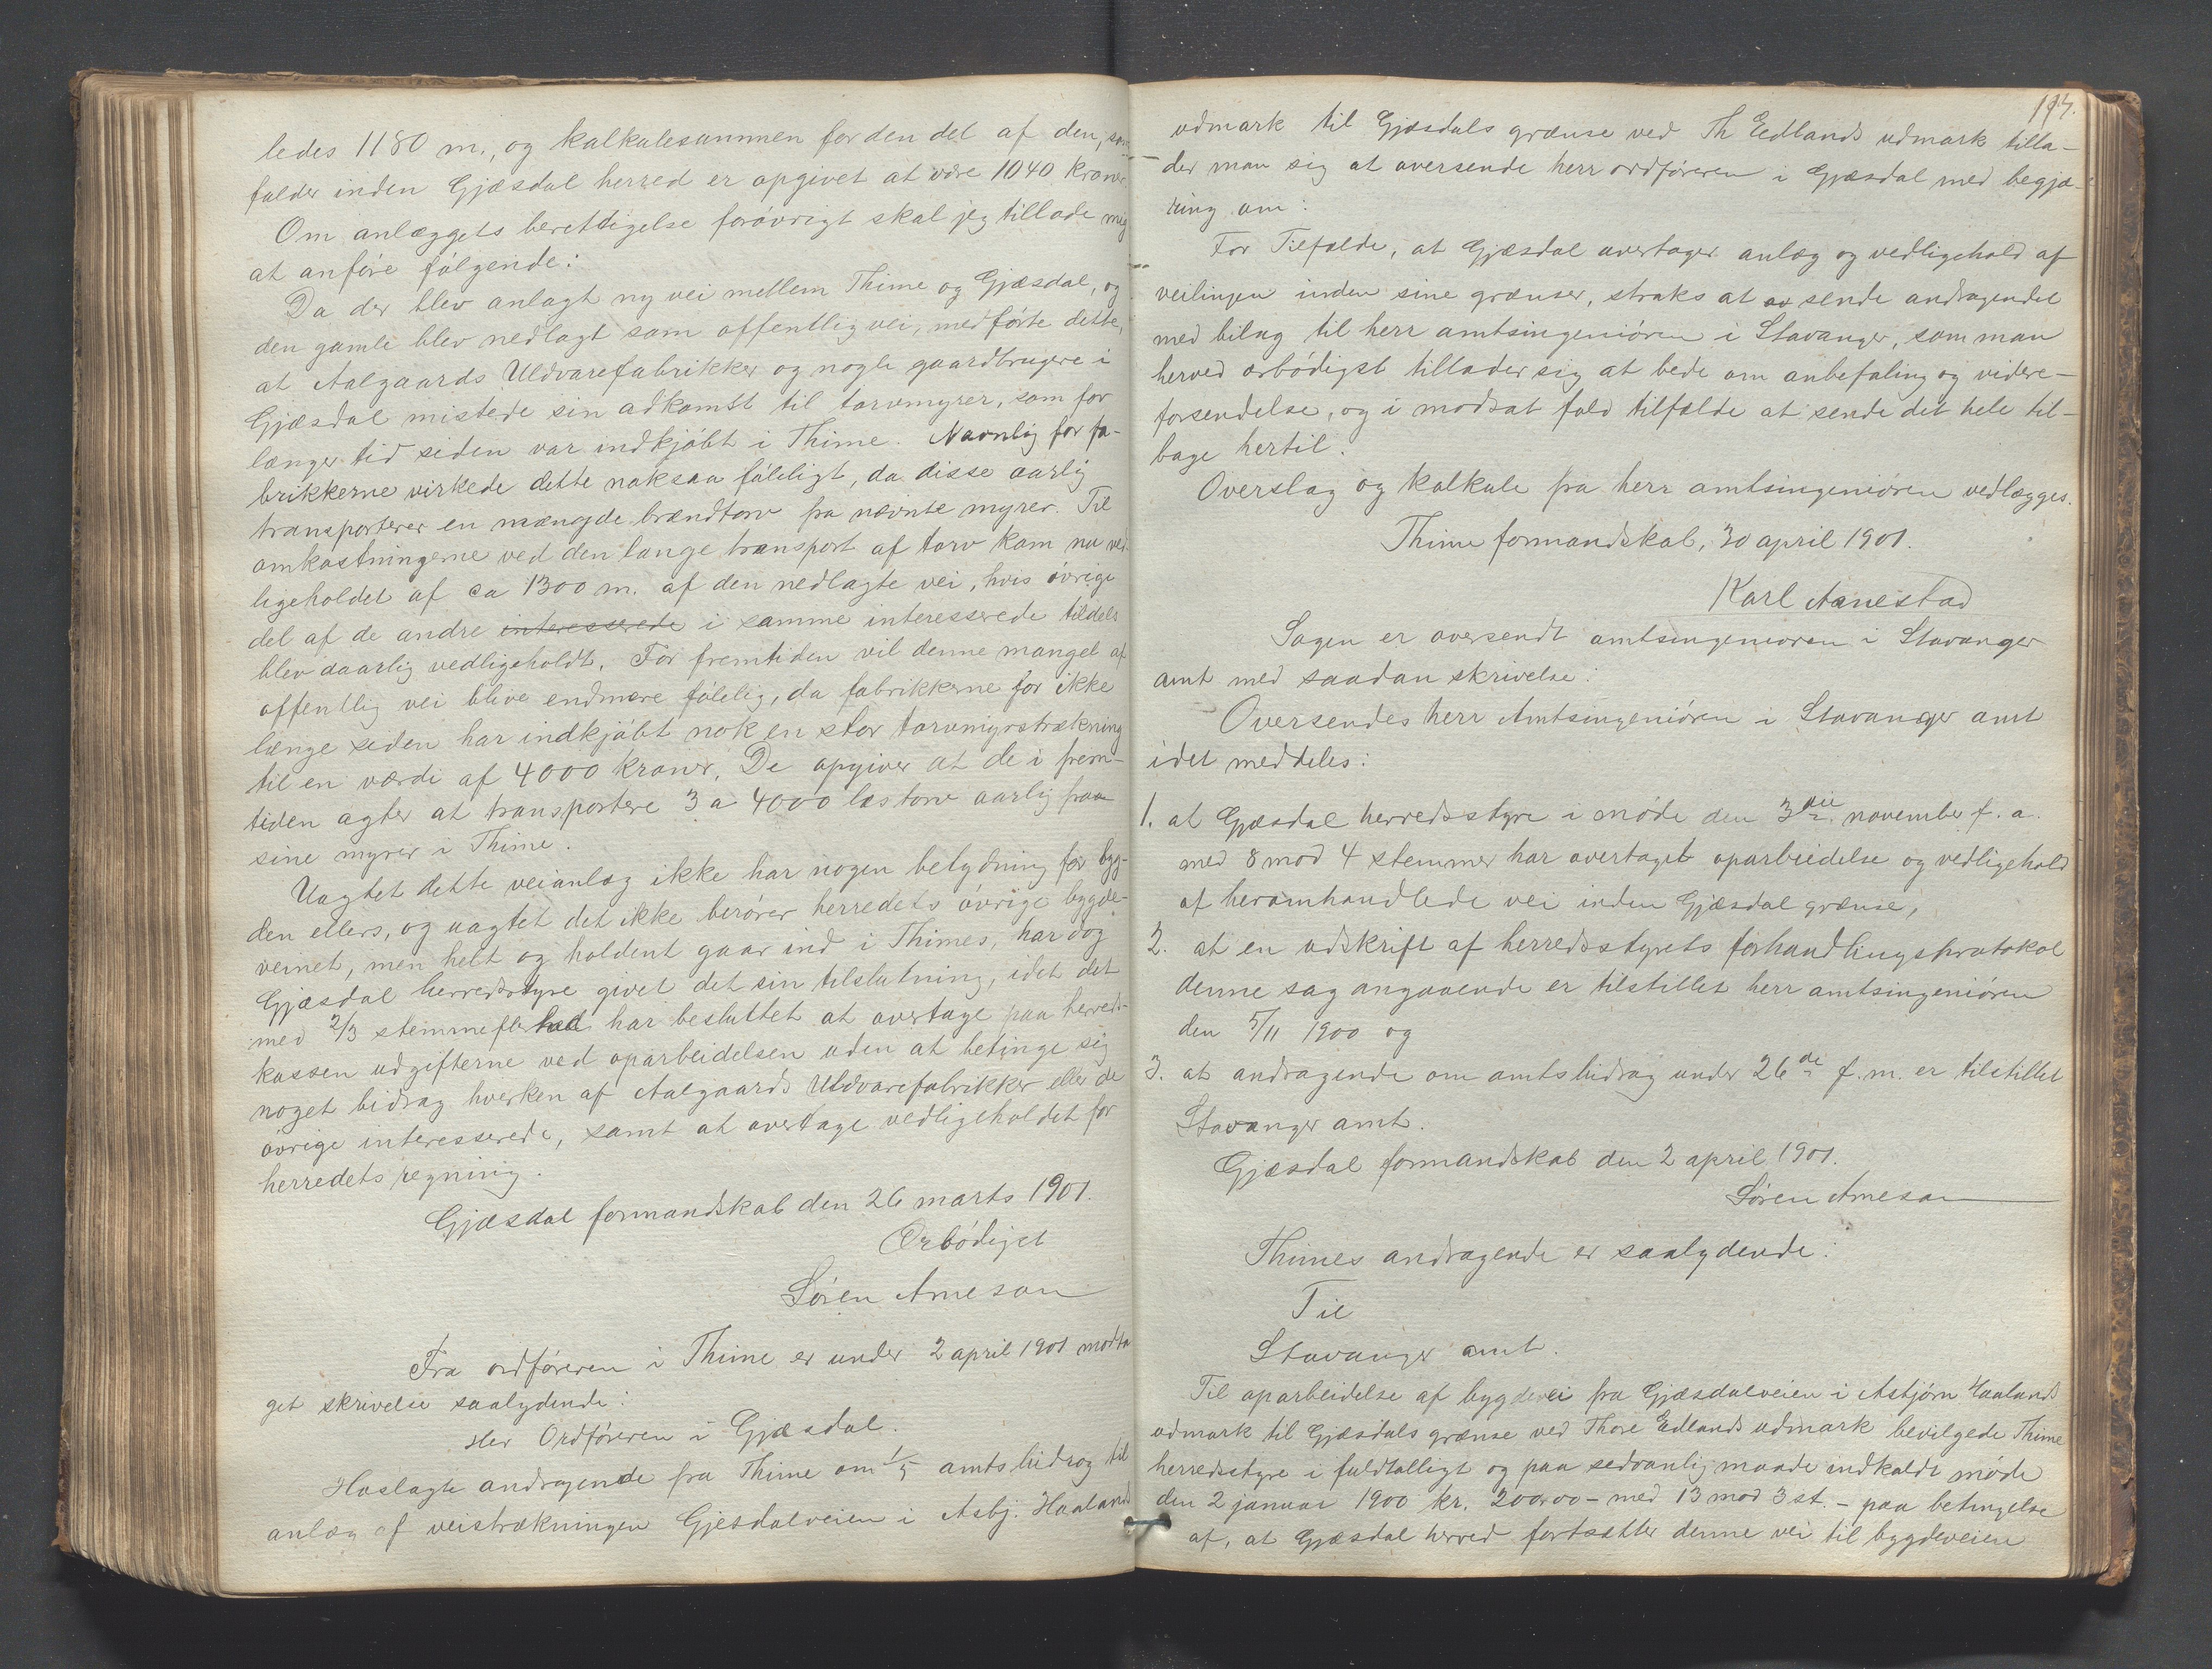 ledes 1180 m., og kalkulesummen for den del af den, som
falder inden Gjæsdal herred er opgivet at være 1040 kroner.
Om anlæggets berettigelse forøvrigt skal jeg tillade mig
at anføre følgende:
Da der blev anlagt ny vei mellem Thime og Gjæsdal, og
den gamle blev nedlagt som offentlig vei, medførte dette,
at Aalgaards Uldvarefabrikker og nogle gaardbrugere i
Gjæsdal mistede sin adkomst til torvmyrer, som for
længer tid siden var indkjøbt i Thime. Navnlig for fa-
brikkerne virkede dette noksaa føleligt, da disse aarlig
transporterer en mængde brændtorv fra nævnte myrer. Til
omkostningerne ved den lange transport af torv kom nu ved-
ligeholdet af ca 1300 m. af den nedlagte vei, hvis øvrige
del af de andre interesserede i samme interesserede tildels
blev daarlig vedligeholdt. For fremtiden vil denne mangel af
offentlig vei blive endmere følelig, da fabrikkerne for ikke
længe siden har indkjøbt nok en stor torvmyrstrækning
til en værdi af 4000 kroner. De opgiver at de i frem-
tiden agter at transportere 3 a 4000 læs torv aarlig fra
sine myrer i Thime.
Uagtet dette veianlæg ikke har nogen betydning for byg-
den ellers, og uagtet det ikke berører herredets øvrige bygde-
veinet, men helt og holdent gaar ind i Thimes, har dog
Gjæsdal herredsstyre givet det sin tilslutning, idet det
med 2/3 stemmeflerhed har besluttet at overtage paa herreds-
kassen udgifterne ved oparbeidelsen uden at betinge sig
noget bidrag hverken af Aalgaards Uldvarefabrikker eller de
øvrige interesserede, samt at overtage vedligeholdet for
herredets regning.
Gjæsdal formandskab den 26 marts 1901.
Ærbødigst
Søren Arneson
Fra ordføreren i Thime er under 2 april 1901 modta
get skrivelse saalydende:
Hr Ordføreren i Gjæsdal.
Hoslagte andragende fra Thime om 1/5 amtsbidrag til
anlæg af veistrækningen Gjesdalveien i Asbj. Haaland
114.
udmark til Gjæsdals grænse ved Th Eedlands udmark tilla-
der man sig at oversende herr ordføreren i Gjæsdal med begjæ-
ring om:
For Tilfælde, at Gjæsdal overtager anlæg og vedligehold af
veilinjen inden sine grænser, straks at sende andragendet
med bilag til herr amtsingeniøren i Stavanger, som man
herved ærbødigst tillader sig at bede om anbefaling og videre-
forsendelse, og i modsat fald tilfælde at sende det hele til-
bage hertil.
Overslag og kalkule fra herr amtsingeniøren vedlægges.
Thime formandskab, 30 april 1901.
Karl Aanestad
Sagen er oversendt amtsingeniøren i Stavanger
amt med saadan skrivelse:
Oversendes herr Amtsingeniøren i Stavanger amt
idet meddeles:
1. at Gjæsdal herredsstyre i møde den 3die november f. a.
med 8 mod 4 stemmer har overtaget oparbeidelse og vedligehold
af heromhandlede vei inden Gjæsdal grænse,
2. at en udskrift af herredsstyrets forhandlingsprotokol
denne sag angaaende er tilstillet herr amtsingeniøren
den 5/11 1900 og
3. at andragende om amtsbidrag under 26de f. m. er tilstillet
Stavanger amt.
Gjæsdal formandskab den 2 april 1901.
Søren Arneson
Thimes andragende er saalydende:
Til
Stavanger amt.
Til oparbeidelse af bygdevei fra Gjæsdalveien i Asbjørn Haalands
udmark til Gjæsdals grænse ved Thore Edlands udmark bevilgede Thime
herredsstyre i fuldtalligt og paa sedvanlig maade indkaldt møde
den 2 januar 1900 kr. 200.00 - med 13 mod 3 st. - paa betingelse
af, at Gjæsdal herred fortsætter denne vei til bygdeveien